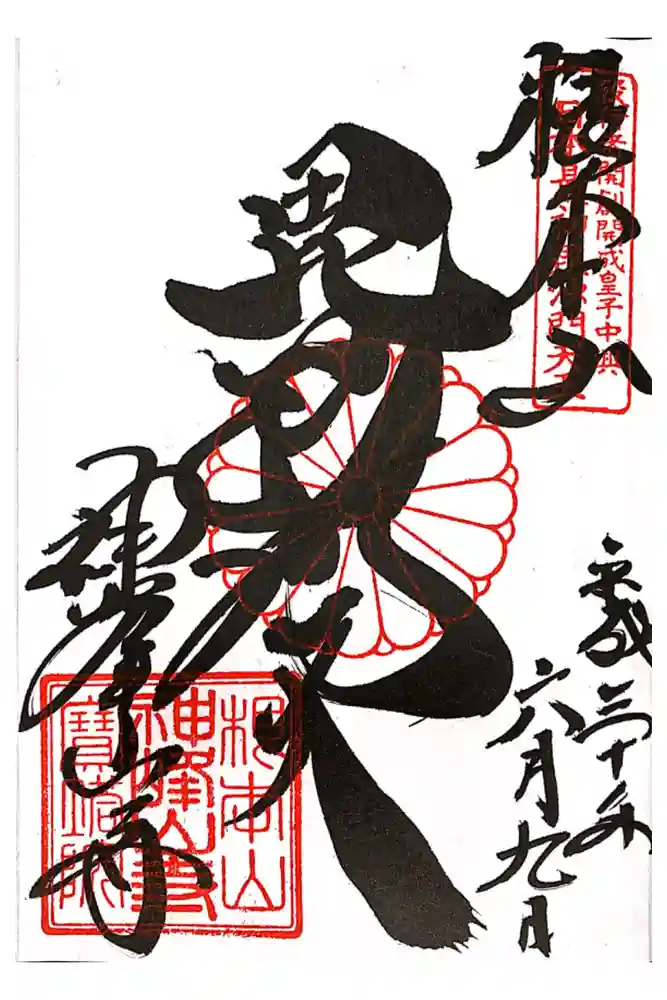 根本山
開創開成皇子中興
毘沙門天
神峯山寺
平成三十年
六月九日
根本山
神峯山寺
寶塔院